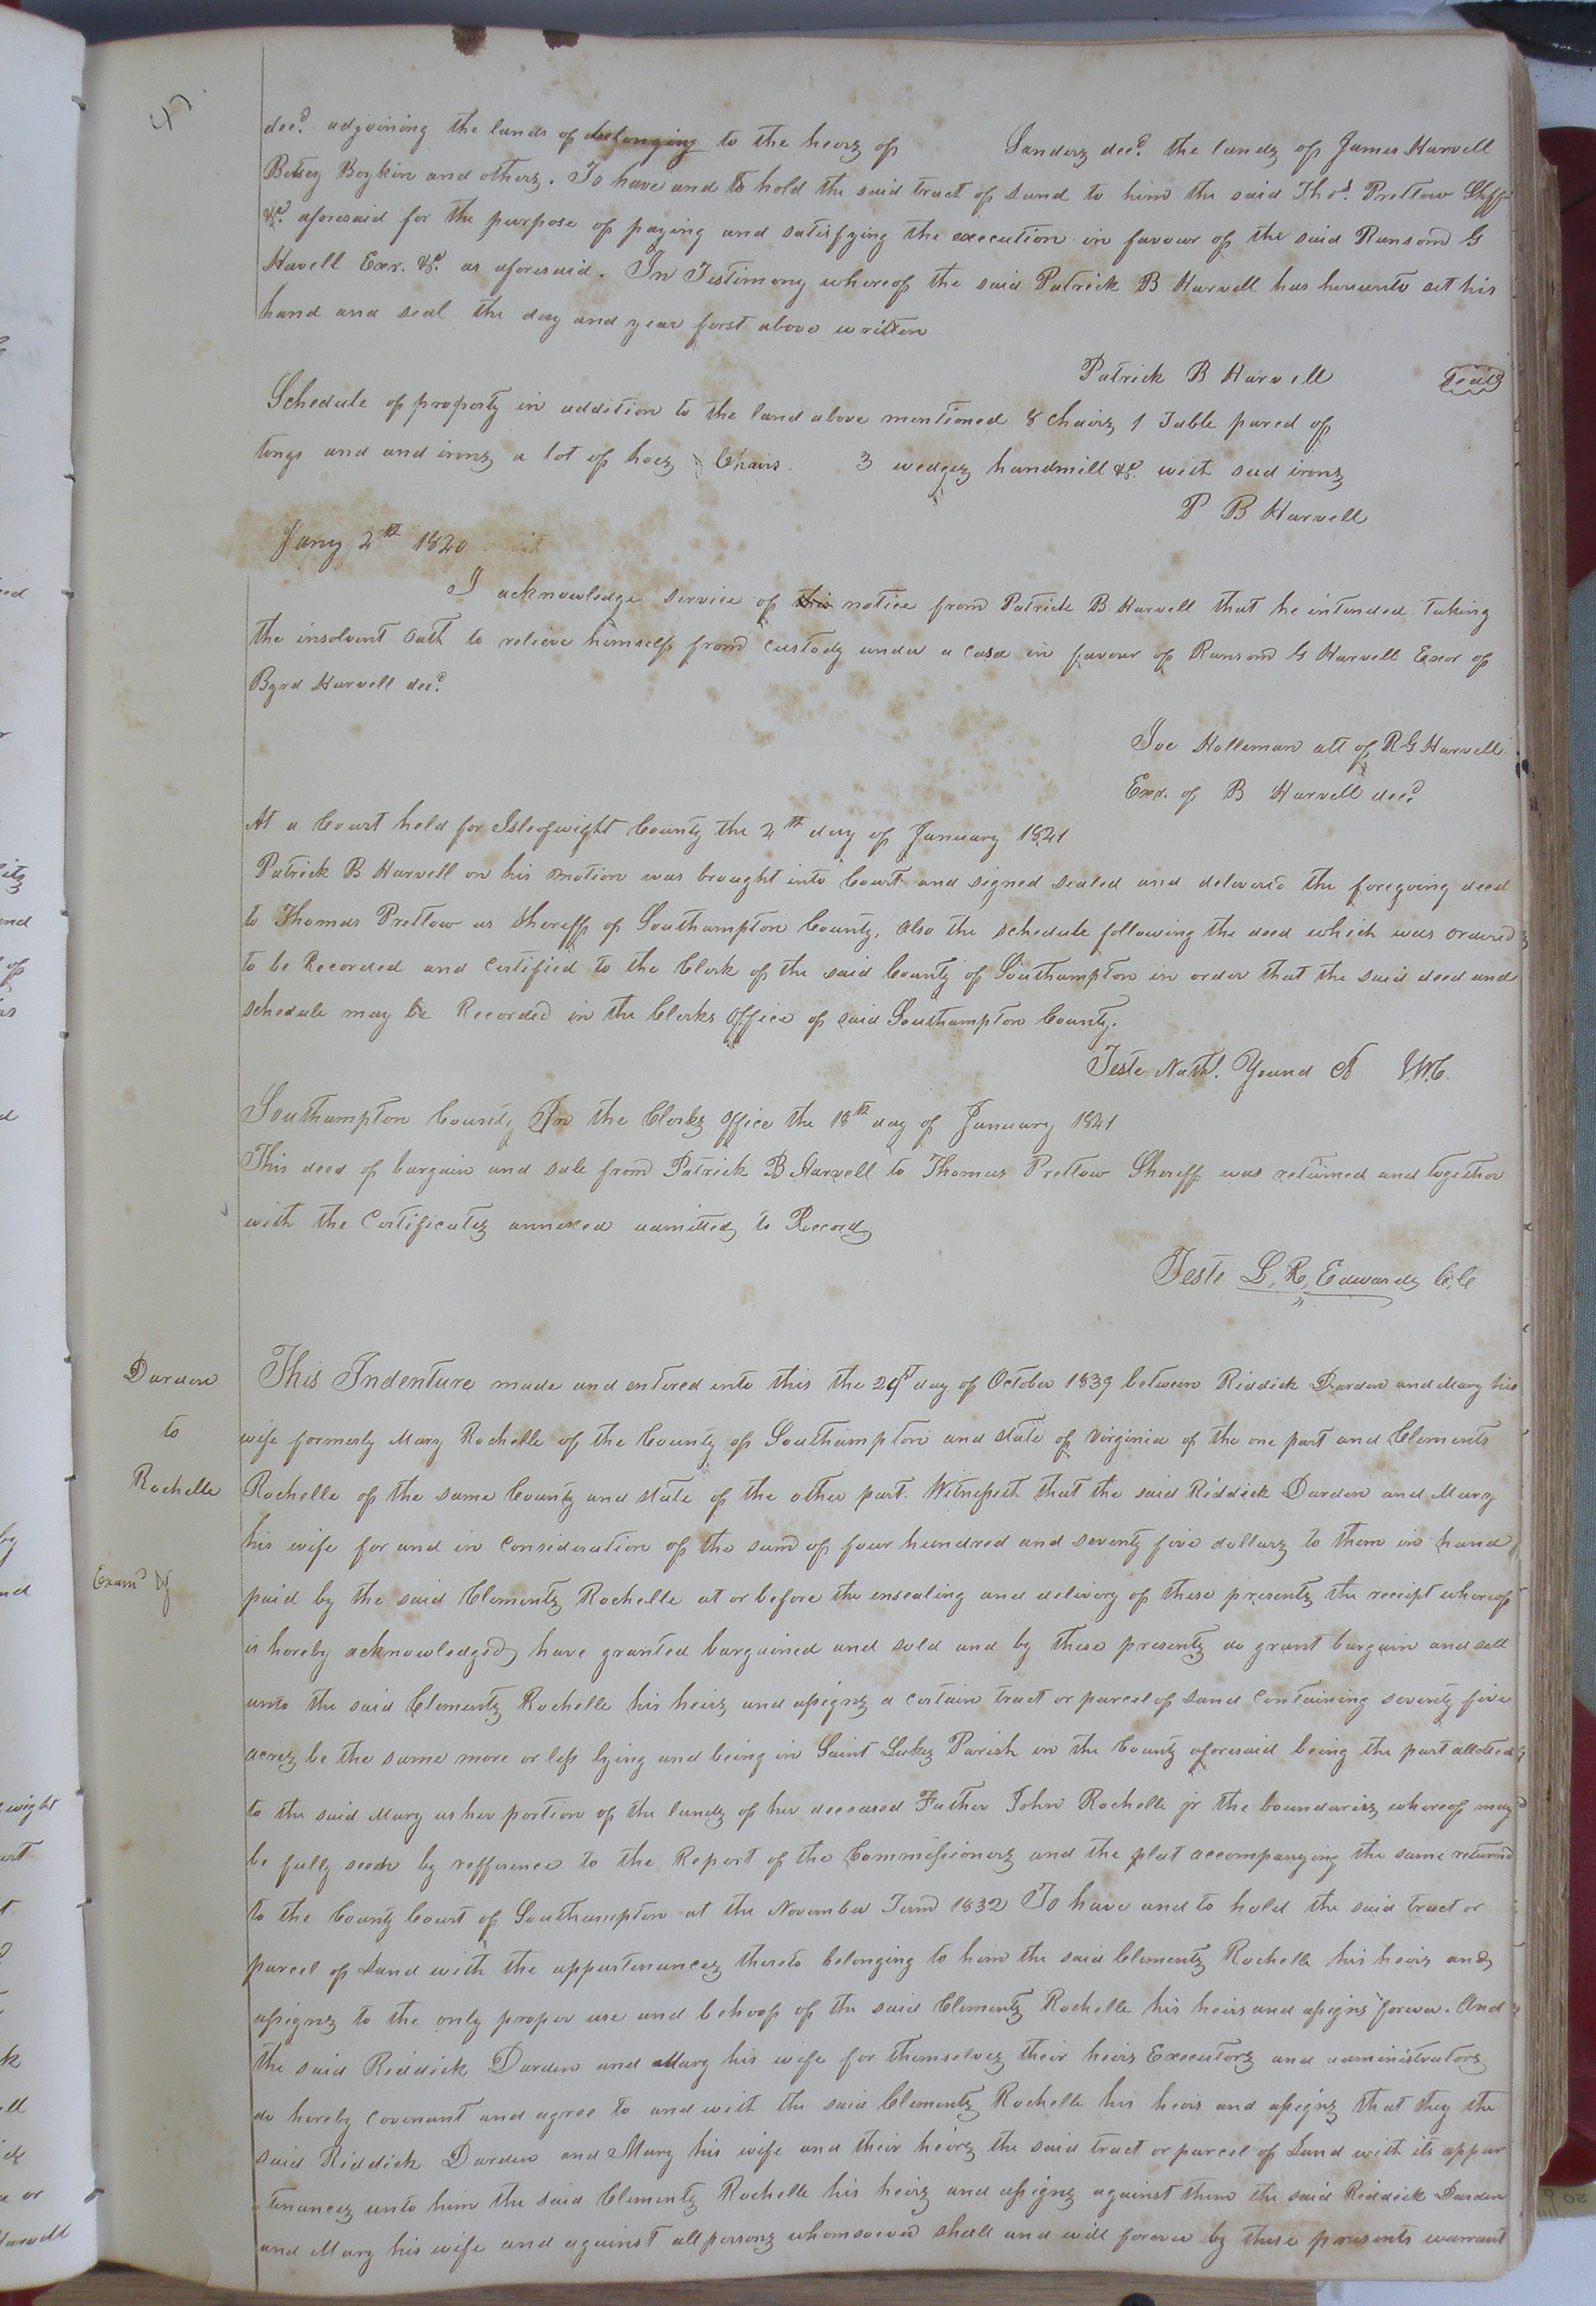 decd. adjoining the lands of belonging to the heirs of Sanders decd. the lands of James Harvell
Betsey Boykin and others. To have and to hold the said tract of Land to him the said Thos. Pretlow Shff
&c. aforesaid for the purpose of paying and satisfying the execution in favour of the said Ransom G
Havell Exr. &c. as aforesaid. In Testimony whereof the said Patrick B Harvell has hereunto set his
hand and seal the day and year first above written
Patrick B Harvell Seal
Schedule of property in addition to the land above mentioned 8 chairs 1 Table pared of
tongs and and irons a lot of hoes Chairs. 3 wedges handmill &c. with sad irons
P B Harvell
Jany 2th 1820
I acknowledge service of this notice from Patrick B Harvell that he intended taking
the insolvent Oath to relieve himself from custody under a casa in favour of Ransom G Harvell Exor of
Byrd Harvell decd.
Joe Holleman att of R G Harvell
Exr. of B Harvell decd.
At a Court held for Isleofwight County the 2th day of January 1821
Patrick B Harvell on his motion was brought into Court and signed sealed and delivered the foregoing deed
to Thomas Pretlow as Sheriff of Southampton County, also the schedule following the deed which was ordered
to be Recorded and certified to the Clerk of the said County of Southampton in order that the said deed and
schedule may be Recorded in the Clerks Office of said Southampton County.
Teste Nathl. Young
Southampton County In the Clerks Office the 18th day of January 1841
This deed of bargain and sale from Patrick B Harvell to Thomas Pretlow Sheriff was returned and together
with the Certificates annexed admitted to Record
Teste L. R. Edwards C,C
Darden
to
Rochelle
Examd
This Indenture made and entered into this the 29t day of October 1839 between Riddick Darden and Mary his
wife formerly Mary Rochelle of the County of Southampton and state of Virginia of the one part and Clements
Rochelle of the same County and state of the other part. Witnesseth that the said Riddick Darden and Mary
his wife for and in consideration of the sum of four hundred and seventy five dollars to them in hand
paid by the said Clements Rochelle at or before the ensealing and delivery of these presents the receipt whereof
is hereby acknowledged have granted bargained and sold and by these presents do grant bargain and sell
unto the said Clements Rochelle his heirs and assigns a certain tract or parcel of Land containing seventy five
acres be the same more or less lying and being in Saint Lukes Parish in the County aforesaid being the part allotted
to the said Mary as her portion of the lands of her deceased Father John Rochelle jr the boundaries whereof may
be fully seen by refference to the Report of the Commissioners and the plat accompanying the same returnd
to the County Court of Southampton at the November Term 1832 To have and to hold the said tract or
parcel of Land with the appurtenances thereto belonging to him the said Clements Rochelle his heirs and
assigns to the only proper use and behoof of the said Clements Rochelle his heirs and assigns forever. And
the said Riddick Darden and Mary his wife for themselves their heirs Executors and administrators
do hereby covenant and agree to and with the said Clements Rochelle his heirs and assigns that they the
said Riddick Darden and Mary his wife and their heirs the said tract or parcel of Land with its appur
tenances unto him the said Clements Rochelle his heirs and assigns against them the said Riddick Darden
and Mary his wife and against all persons whomsoever shall and will forever by these presents warrant